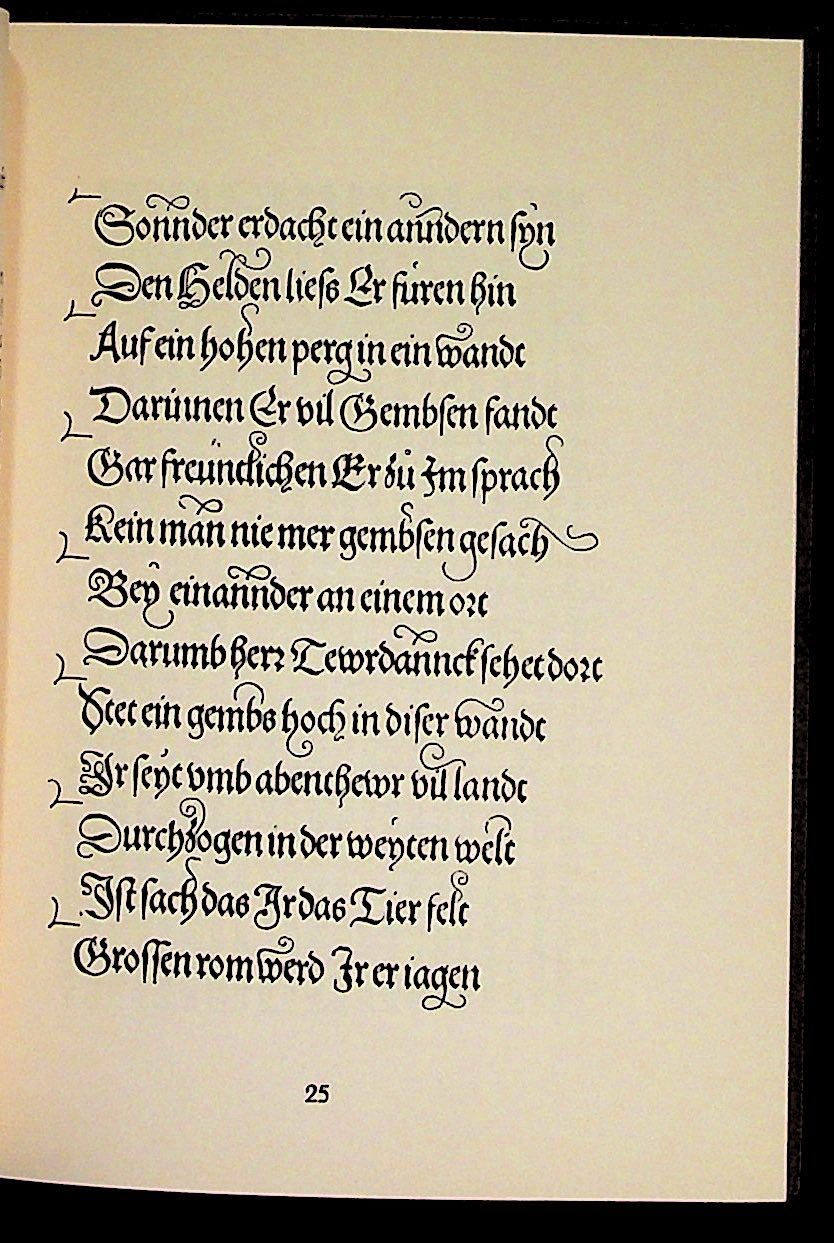 Sonnder erdacht ein anndern syn
Den Helden liess Er füren hin
Auf ein hohen perg in ein wandt
Darinnen Er vil Gembsen fandt
Gar freüntlichen Er zů Im sprach
Kein man nie mer gembsen gesach
Bey einannder an einem ort
Darumb herr Tewrdannck sehet dort
Stet ein gembs hoch in diser wandt
Ir seyt vmb abenthewr vil landt
Durchzogen in der weyten welt
Ist sach das Ir das Tier felt
Grossen rom werd Ir er iagen
25